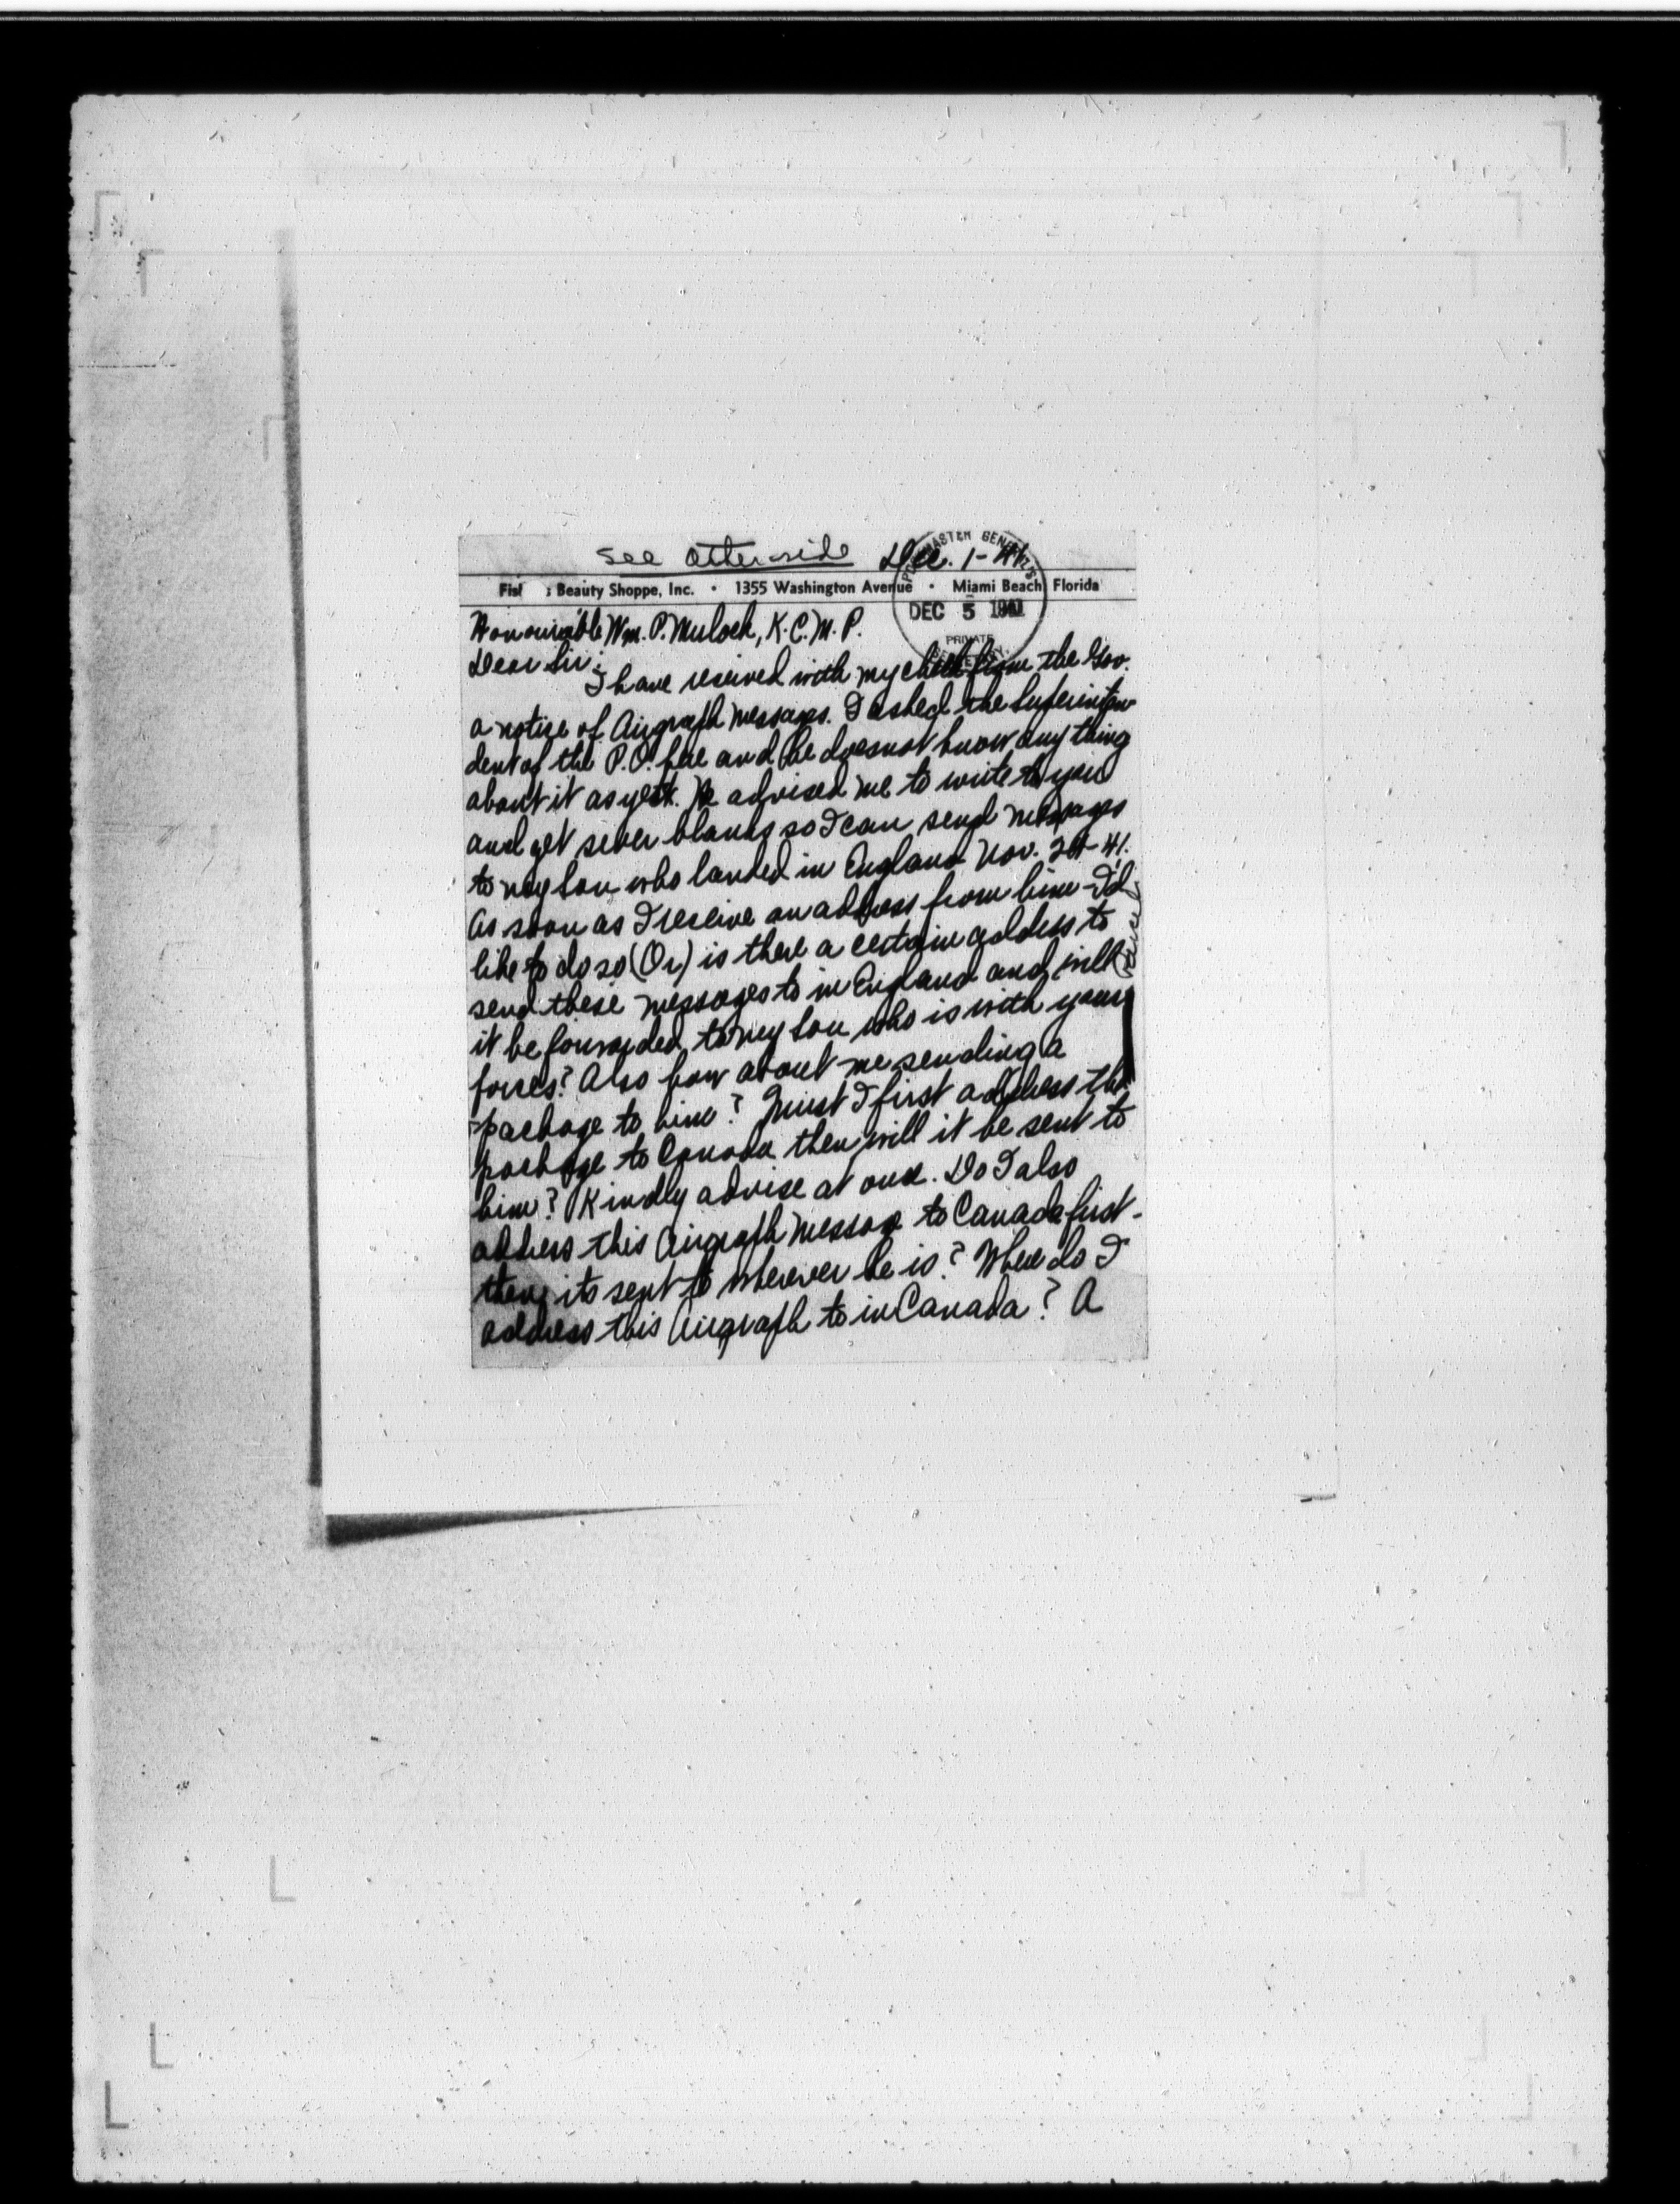 see otherside Dec. 1-41
Fis : Beauty Shoppe, Inc. • 1355 Washington Avenue • Miami Beach Florida
POSTMASTER GENERAL'S
DEC 5 1941
PRIVATE
Honourable Wm. P. Mulock, K.C. M.P.
Dear Sir:
I have received with my check from the Gov.
a notice of Airgraph Messages. I asked the Superinten
dent of the P.O. here and he doesnot know any thing
about it as yet. He advised me to write to you
and get sever blanks so I can send messages
to my Son who landed in England Nov. 41.
As soon as I receive an address from him I'd
like to do so (Or) is there a certain address to
send these messages to in England and will
it be forwarded to my Son who is with your
forces? Also how about me sending a
package to him? Must I first address the
package to Canada then will it be sent to
him? Kindly advise at once. Do I also
address this Airgraph Message to Canada first-
then its sent to wherever he is? Where do I
address this Airgraph to in Canada? A